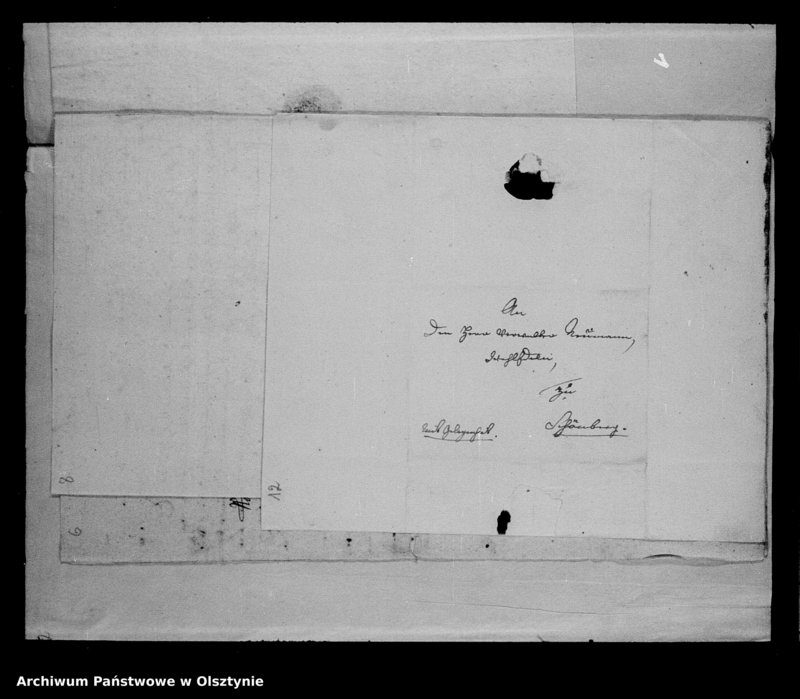 An
den Herrn Verwalter Neumann,
zu
Schönberg.
mit Gelegenheit.
8
12
6
Archiwum Państwowe w Olsztynie